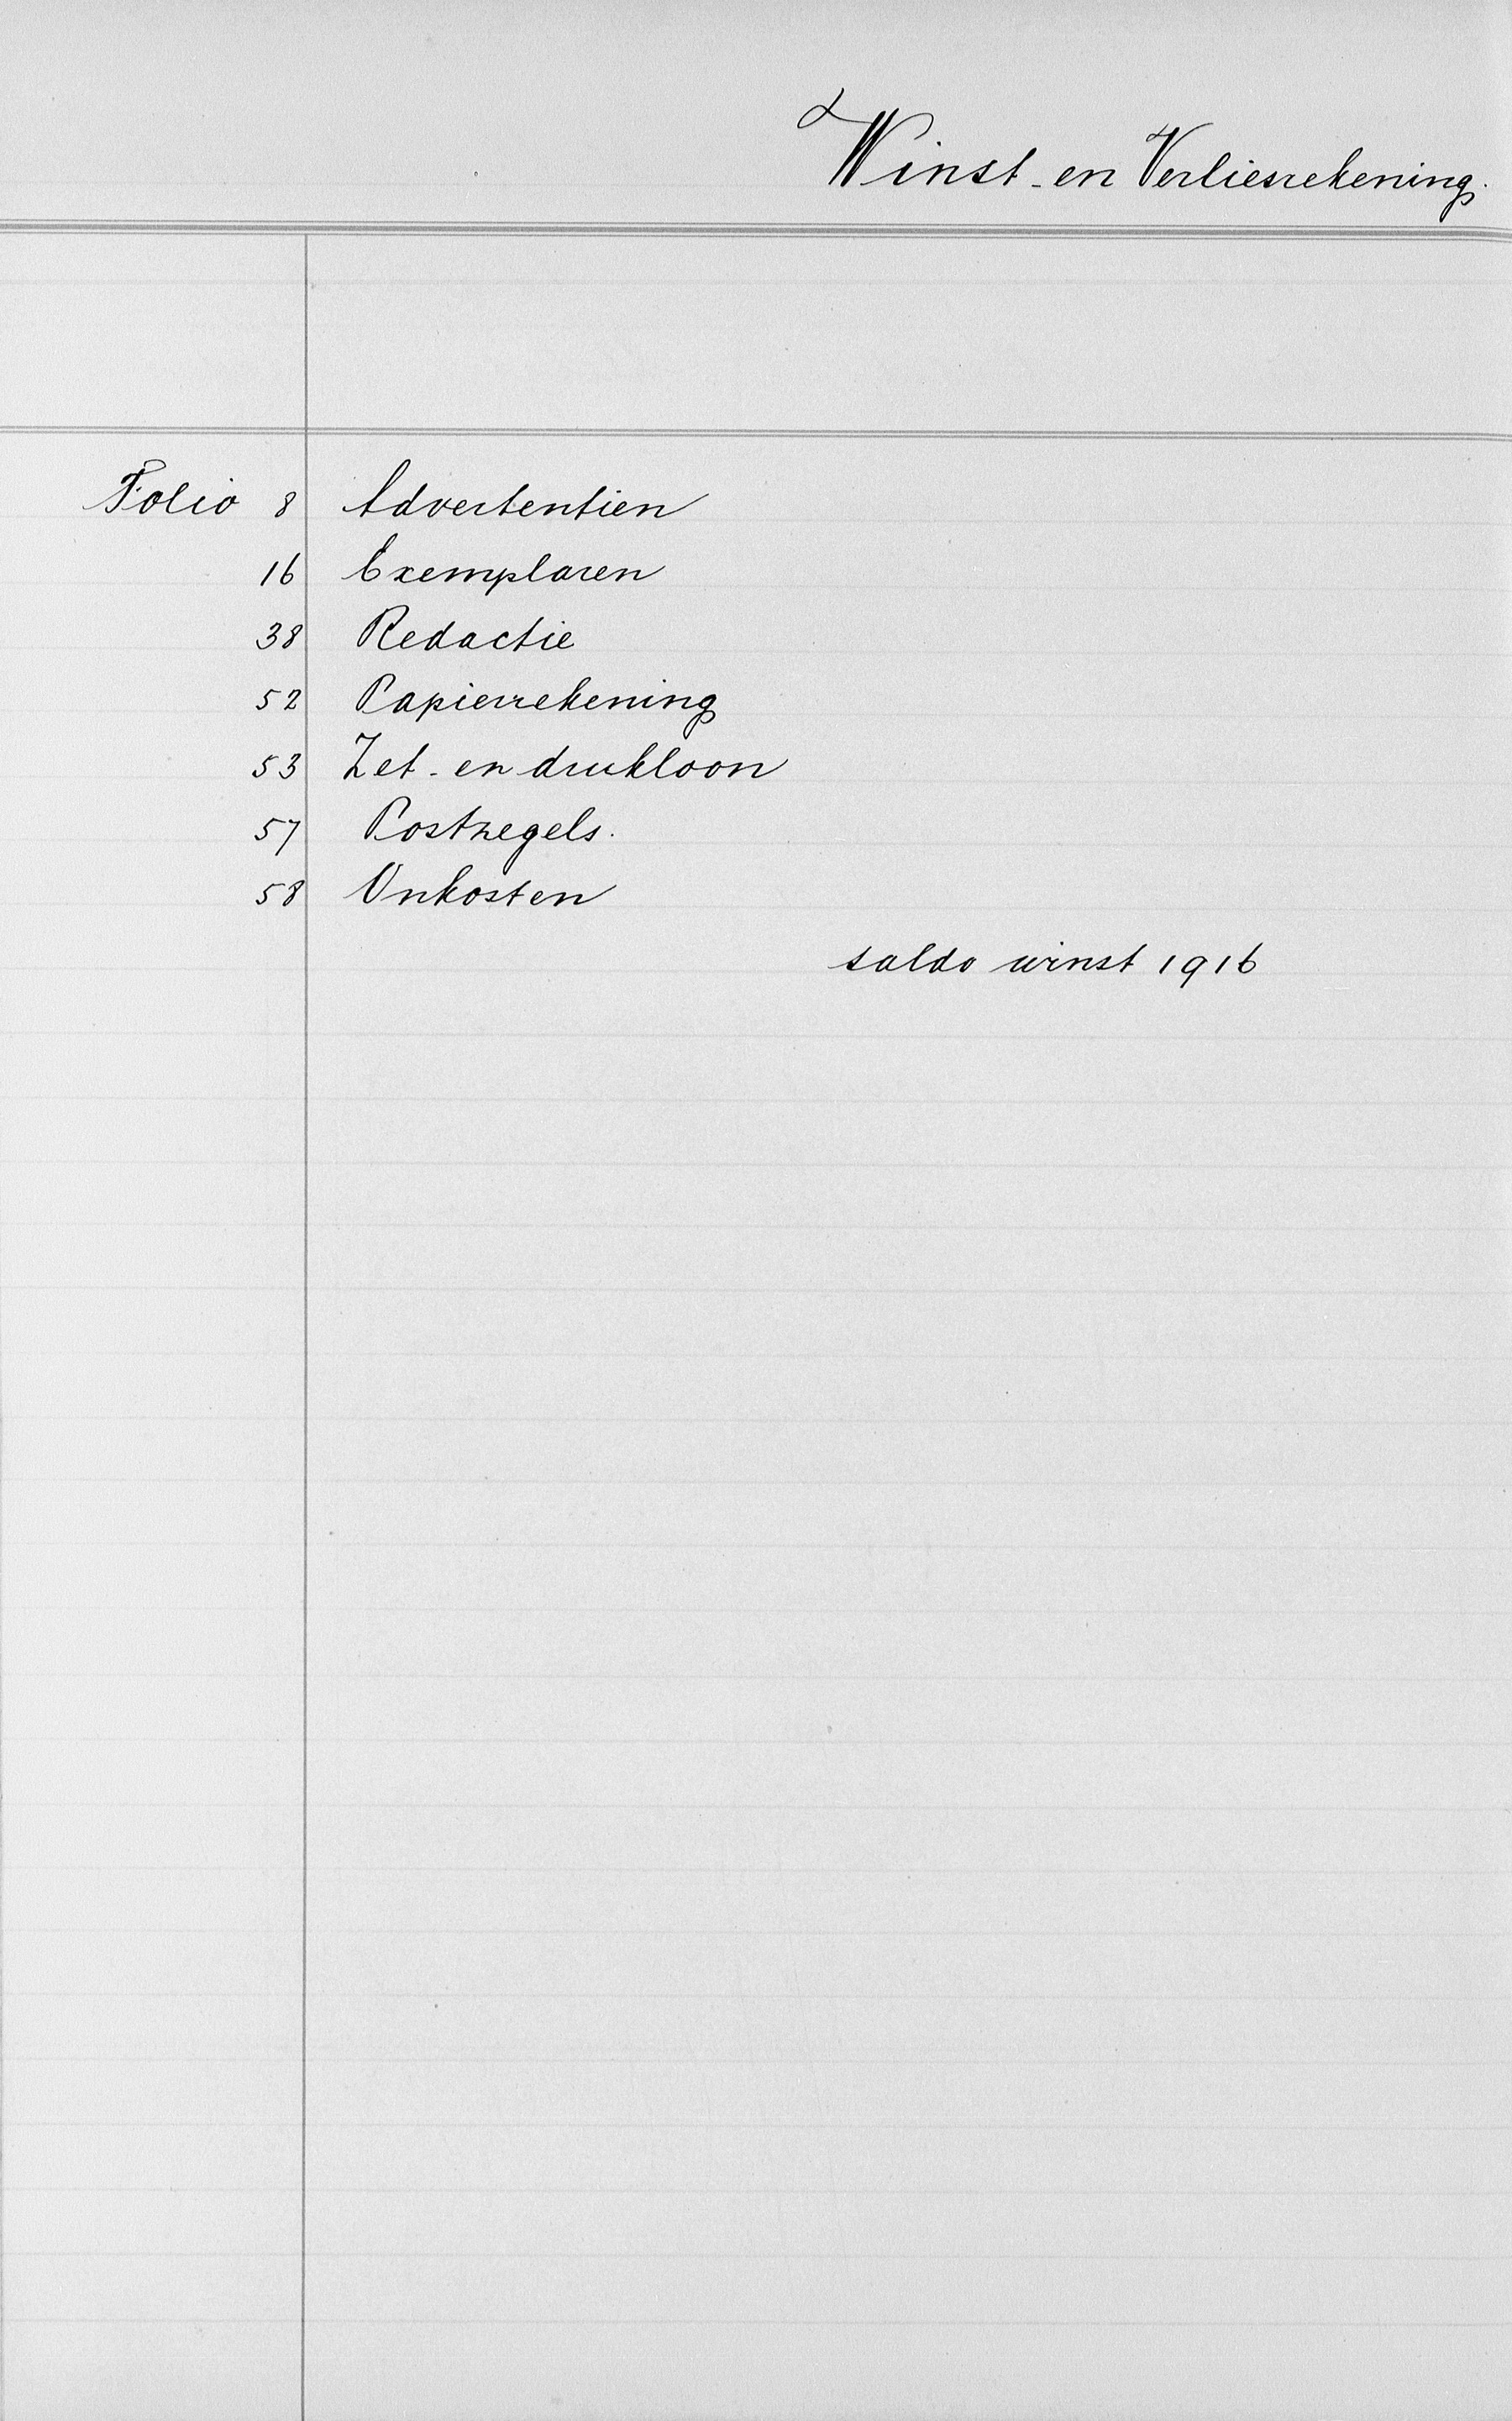 Winst- en Verliesrekening.
Folio 8 Advertentien
16 Exemplaren
38 Redactie
52 Papierrekening
53 Zet- en drukloon
57 Postzegels.
58 Onkosten
saldo winst 1916